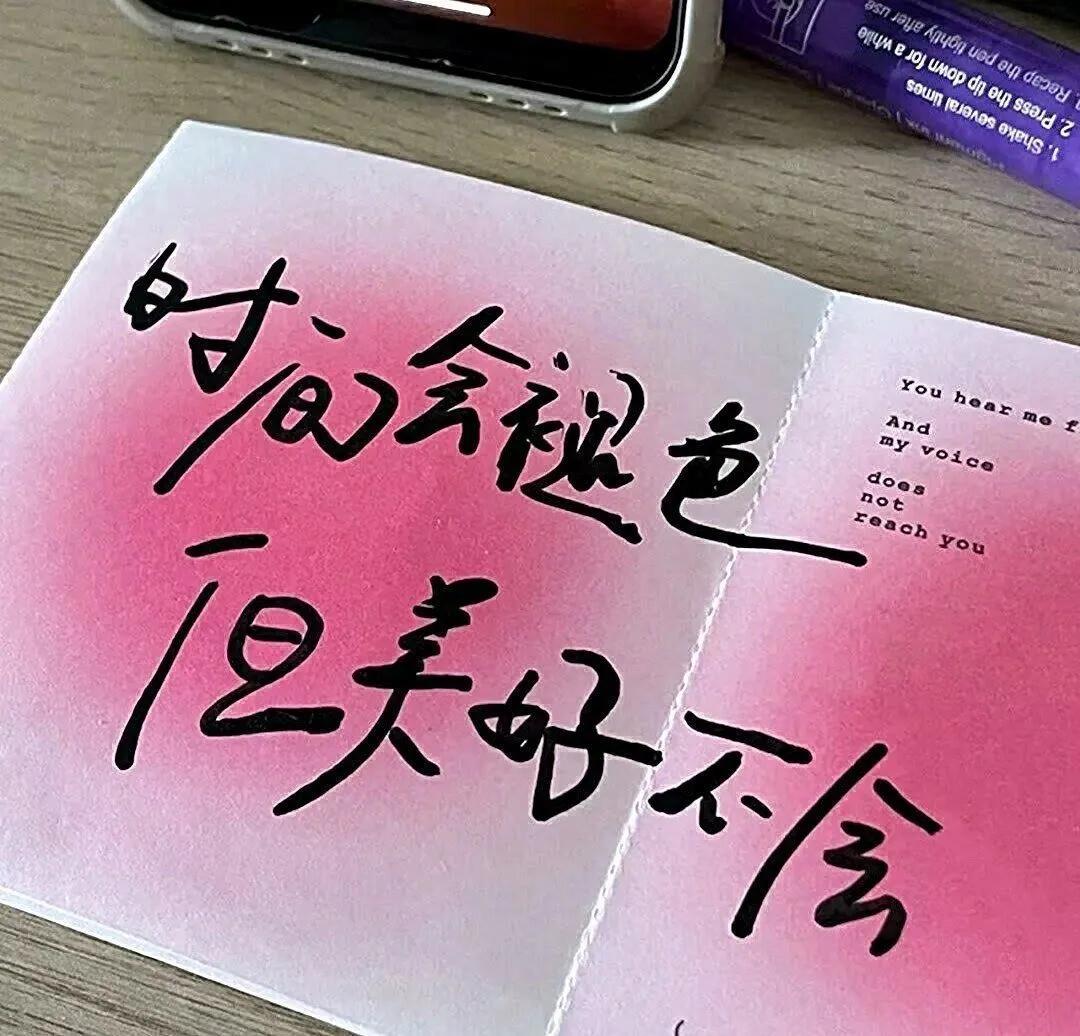 时间会褪色
但美好不会
You hear me f
And
my voice
does
not
reach you
1. Shake several times
2. Press the tip down for a while
Recap the pen tightly after use